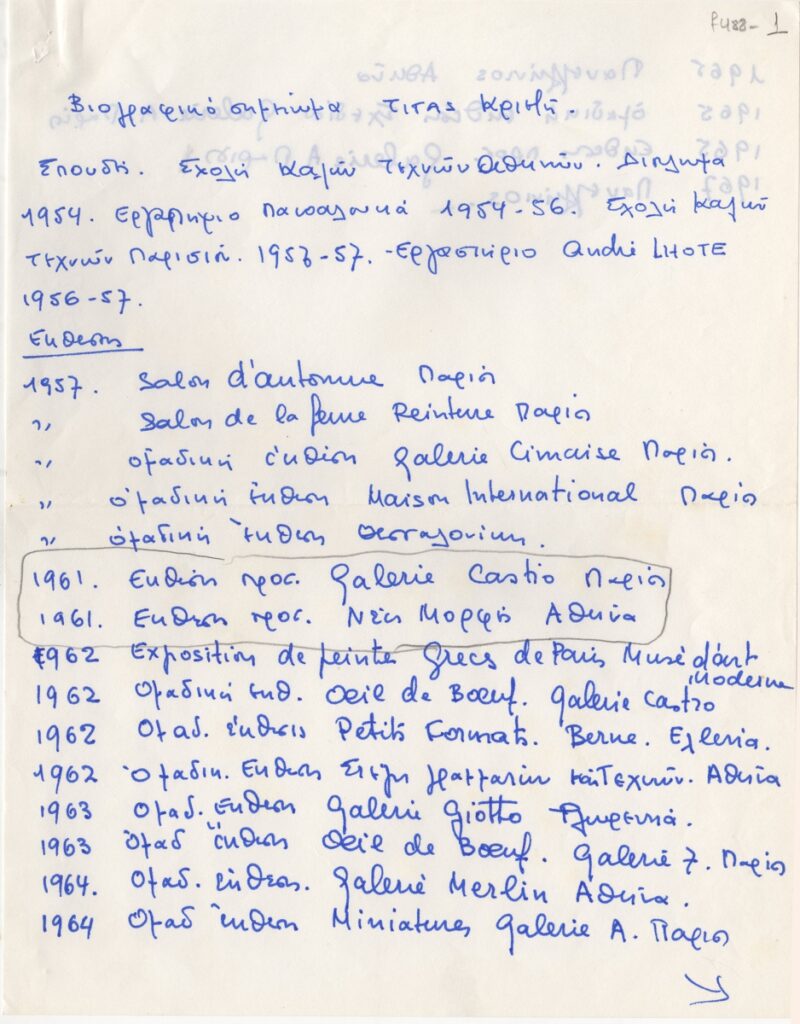 1
Βιογραφικό σημείωμα
Σπουδές. Σχολή Καλών Τεχνών Αθηνών. Δίπλωμα
1954. Εργαστήριο Παπαλουκά 1954-56. Σχολή Καλών
Τεχνών Παρισιών. 1953-57. - Εργαστήριο André LHOTE
1956-57.
Εκθέσεις
1957. Salon d'automne Παρίσι
" Salon de la jeune Peinture Παρίσι
" ομαδική έκθεση Galerie Cimaise Παρίσι.
" ομαδική έκθεση Maison International Παρίσι
" ομαδική Έκθεση Θεσσαλονίκη.
1961. Εκθεση προσ. Galerie Castro Παρίσι
1961. Εκθεση προσ. Νέες Μορφές Αθήνα
1962 Exposition de peintes Grecs de Paris Musé d'art
Moderne
1962 Ομαδική εκθ. Oeil de Boeuf. Galerie Castro
1962 Ομαδ. έκθεσις Petits Formats. Berne. Ελβετία.
1962 Ομαδικ. Εκθεση Στέγη Γραμμάτων και Τεχνών. Αθήνα
1963 Ομαδ. Εκθεση Galerie Giotto Φλωρεντία.
1963 Ομαδ έκθεση Oeil de Boeuf. Galerie 7. Παρίσι
1964. Ομαδ. έκθεση. Galerie Merlin Αθήνα.
1964 Ομαδ έκθεση Miniatures Galerie A. Παρίσι